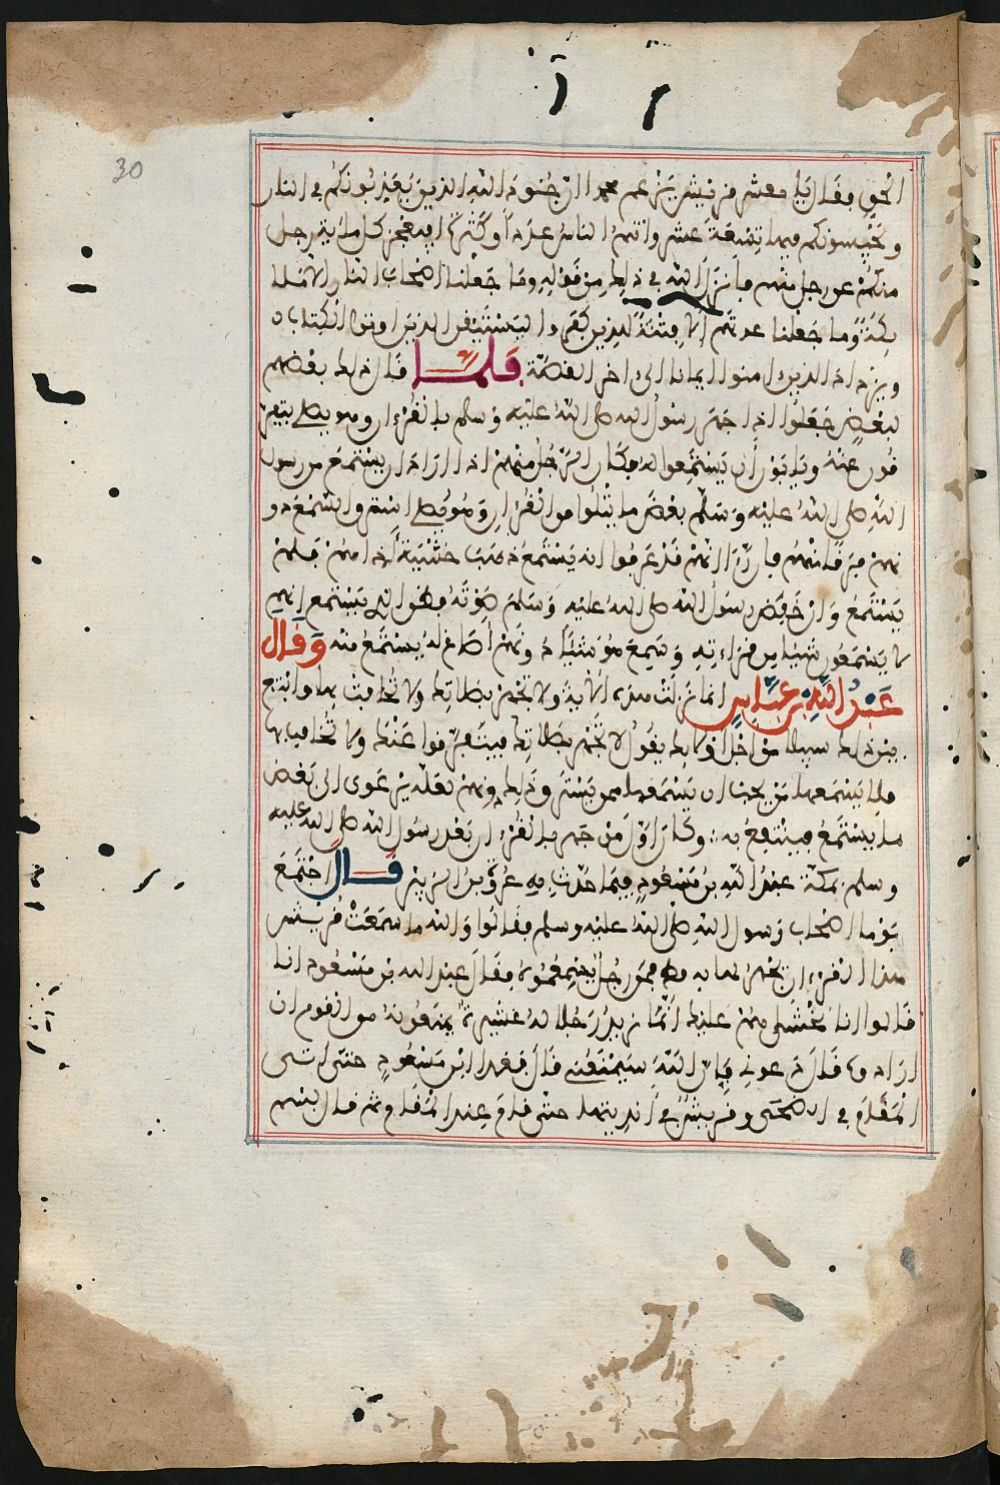 30
الحق فقال يا معشر قريش يزعم محمد ان جنود الله الذين يعذبونكم في النار
ويحبسونكم فيها تسعة عشر وانتم الناس عددا وكثرة افيعجز كل مائة رجل
منكم عن رجل منهم فانزل الله في ذلك من قوله وما جعلنا اصحاب النار الا ملا
يكة وما جعلنا عدتهم الا فتنة للذين كفروا ليستيقن الذين اوتوا الكتاب
ويزداد الذين امنوا ايمانا الى اخر القصة فلما قال ذلك بعضهم
لبعض جعلوا اذا جهر رسول الله صلى الله عليه وسلم بالقرءان وهو يصلي يتفر
قون عنه ويابون ان يستمعوا له فكان الرجل منهم اذا اراد ان يستمع من رسول
الله صلى الله عليه وسلم بعض ما يتلوا من القرءان وهو يصلي استرق السمع دو
نهم فرقا منهم فان رءا انهم قد عرفوا انه يستمع ذهب خشية اذاهم فلم
يستمع وان خفض رسول الله صلى الله عليه وسلم صوته فظن الذي يستمع انهم
لا يستمعون شيئا من قراءته وسمع هو شيئا دونهم اصاخ له يستمع منه وقال
عبد الله بن عباس انما نزلت هذه الاية ولا تجهر بصلاتك ولا تخافت بها وابتغ
بين ذلك سبيلا من اجل اولايك يقول لا تجهر بصلاتك فيتفرقوا عنك ولا تخافت بها
فلا يسمعها من يحب ان يسمعها ممن يسترق ذلك دونهم لعله يرعوى الى بعض
ما يستمع فينتفع به وكان اول من جهر بالقرءان بعد رسول الله صلى الله عليه
وسلم بمكة عبد الله بن مسعود فيما حدث به عروة بن الزبير قال اجتمع
يوما اصحاب رسول الله صلى الله عليه وسلم فقالوا والله ما سمعت قريش
هذا القرءان يجهر لها به قط فمن رجل يسمعهموه فقال عبد الله بن مسعود انا
قالوا انا نخشاهم عليك انما نريد رجلا له عشيرة يمنعونه من القوم ان
ارادوه قال دعوني فان الله سيمنعني قال فغدا ابن مسعود حتى اتى
المقام في الضحى وقريش في انديتها حتى قام عند المقام ثم قال بسم